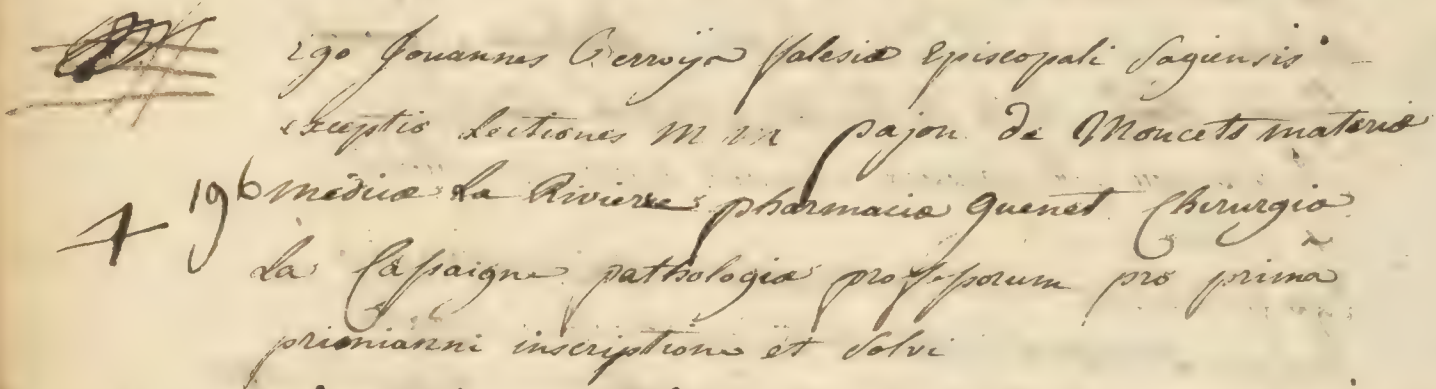 ego Jouannes Gerroije falesiæ Episcopali Sagiensis
exceptio Lectiones M M pajon de Moncets materiæ
4 196 medicæ La Riviere pharmaciæ Guenet Chirurgiæ
La Cassaigne pathologiæ professorum pro prima
primianni inscriptione et Solvi